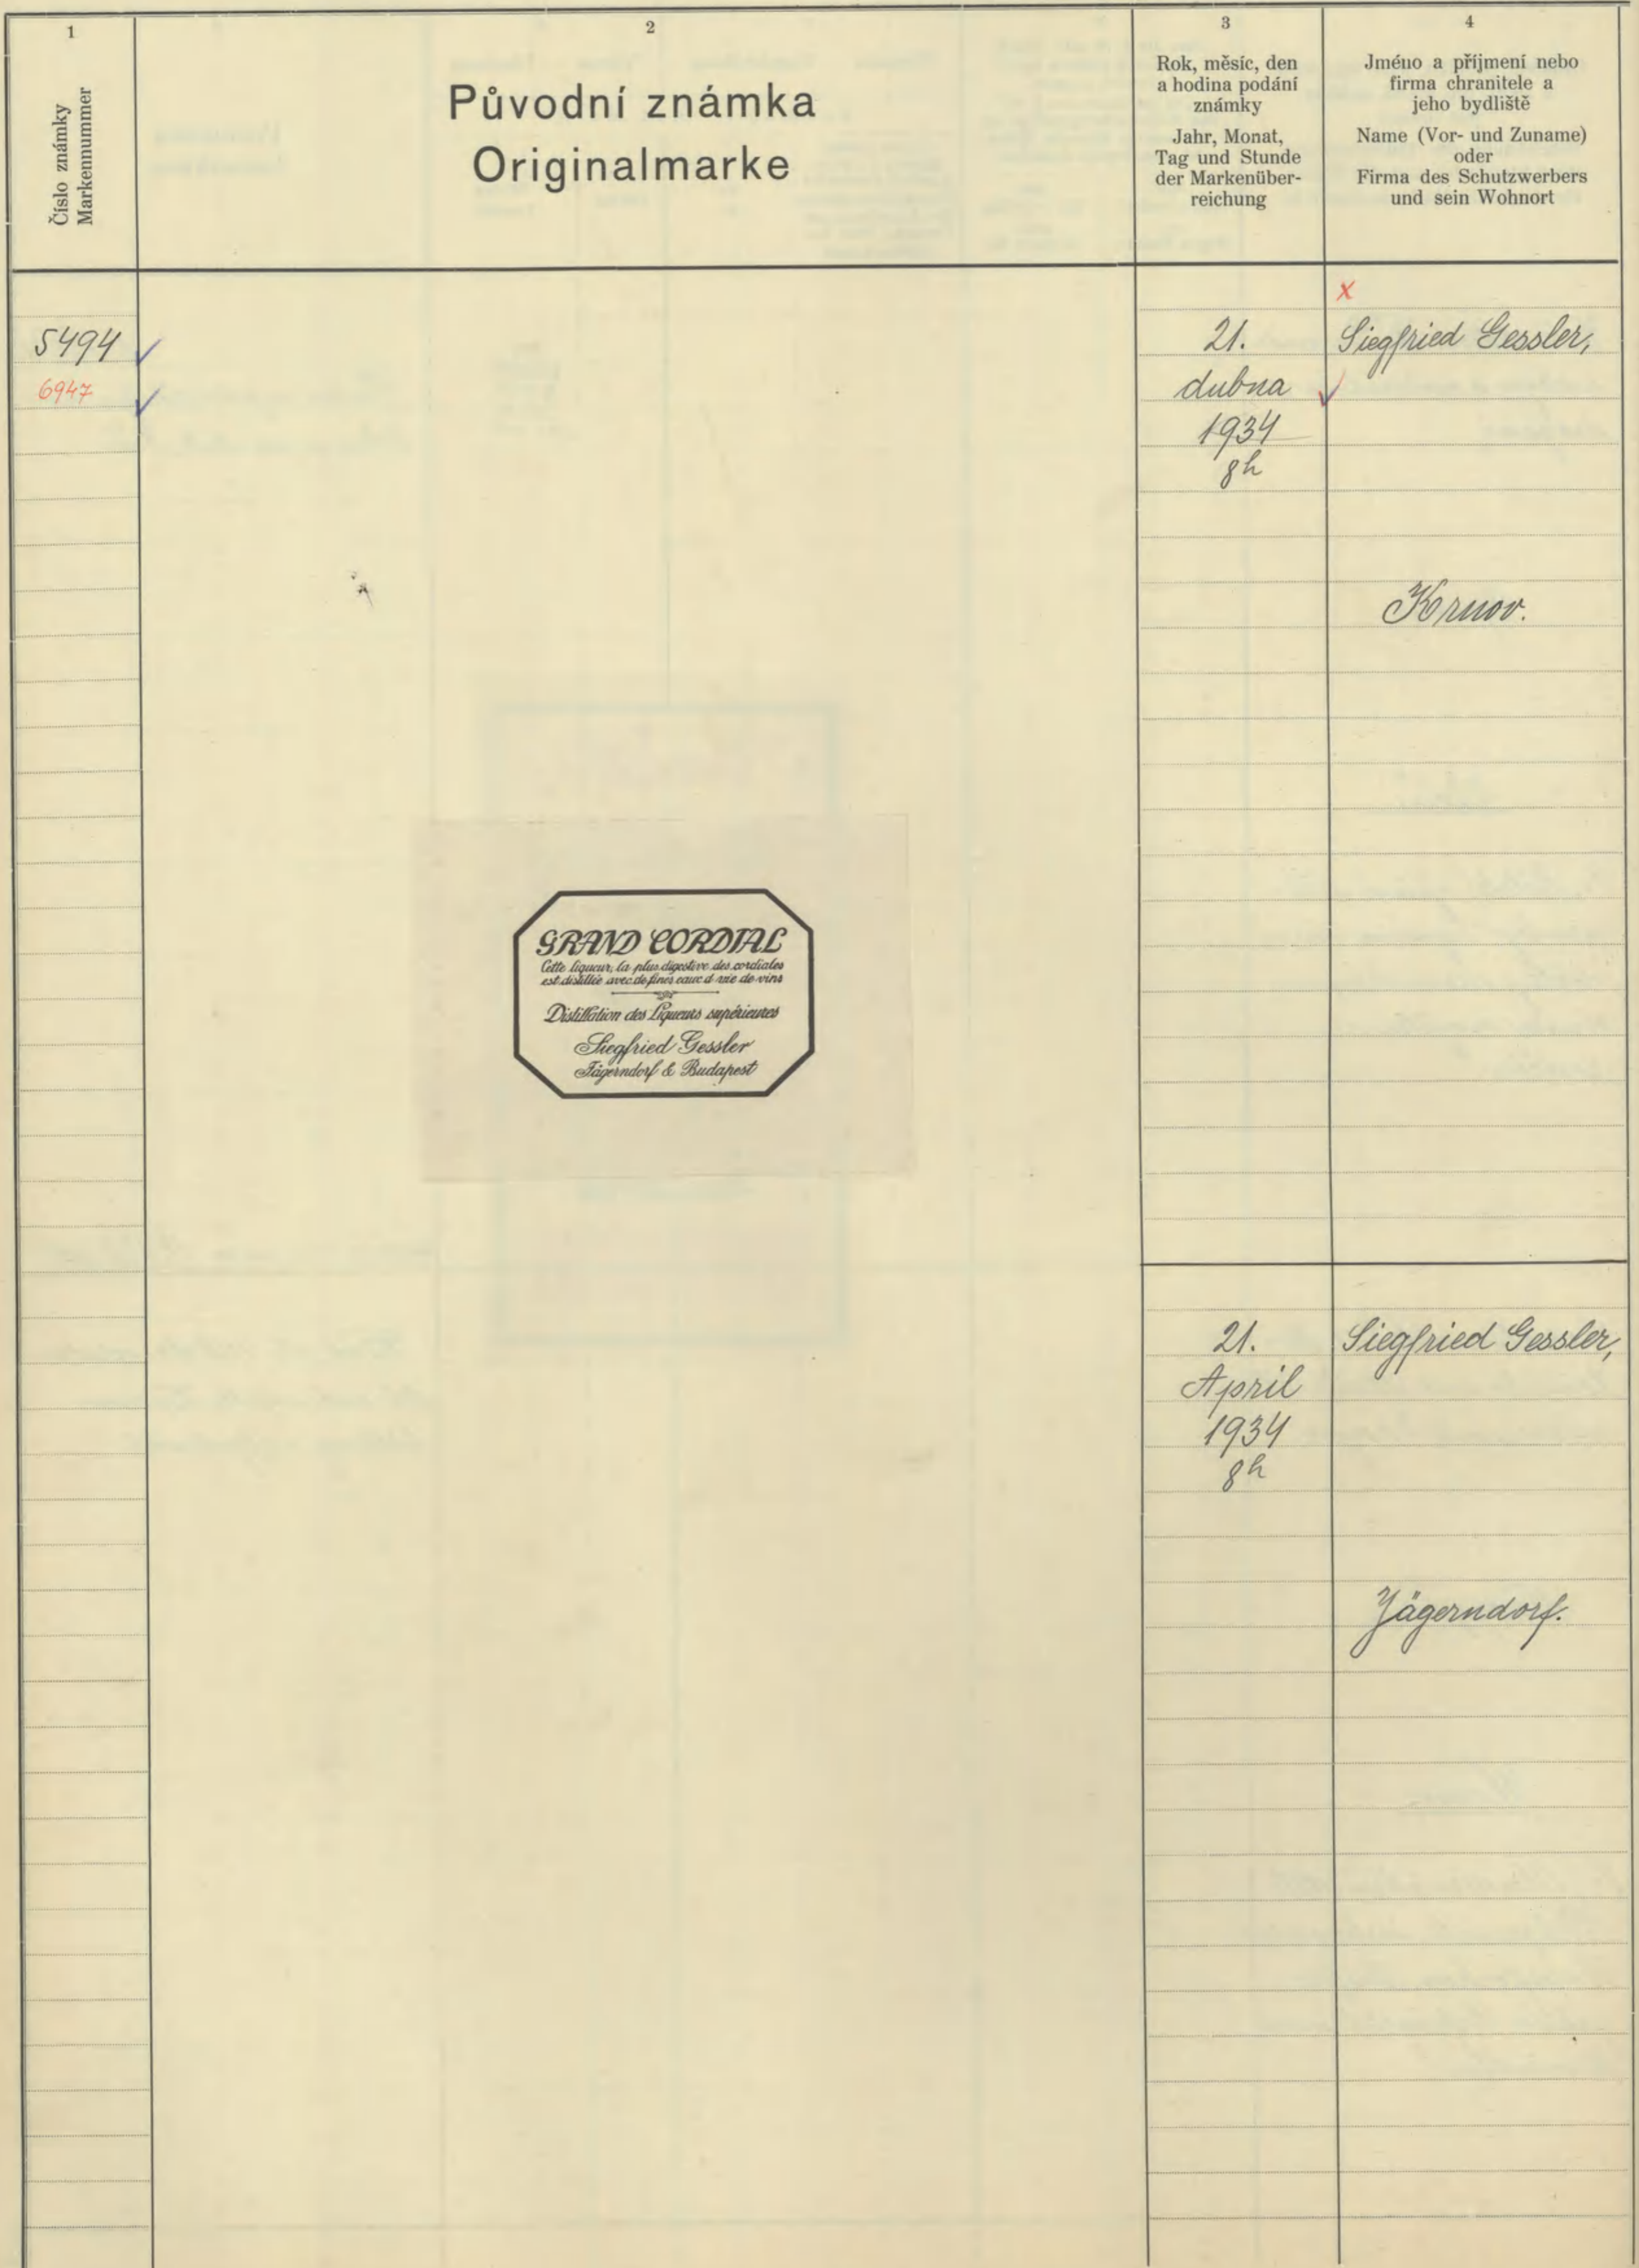 1
Číslo známky
Markennummer
2
Původní známka
Originalmarke
3
Rok, měsíc, den
a hodina podání
známky
Jahr, Monat,
Tag und Stunde
der Markenüber-
reichung
4
Jméno a příjmení nebo
firma chranitele a
jeho bydliště
Name (Vor- und Zuname)
oder
Firma des Schutzwerbers
und sein Wohnort
x
5494
6947
21.
dubna
1934
8h
Siegfried Gessler,
Krnov.
GRAND CORDIAL
Cette liqueur, la plus digestive des cordiales
est distillée avec de fines eaux d vie de vins
Distillation des Liqueurs supérieures
Siegfried Gessler
Jägerndorf & Budapest
21.
April
1934
8h
Siegfried Gessler,
Jägerndorf.